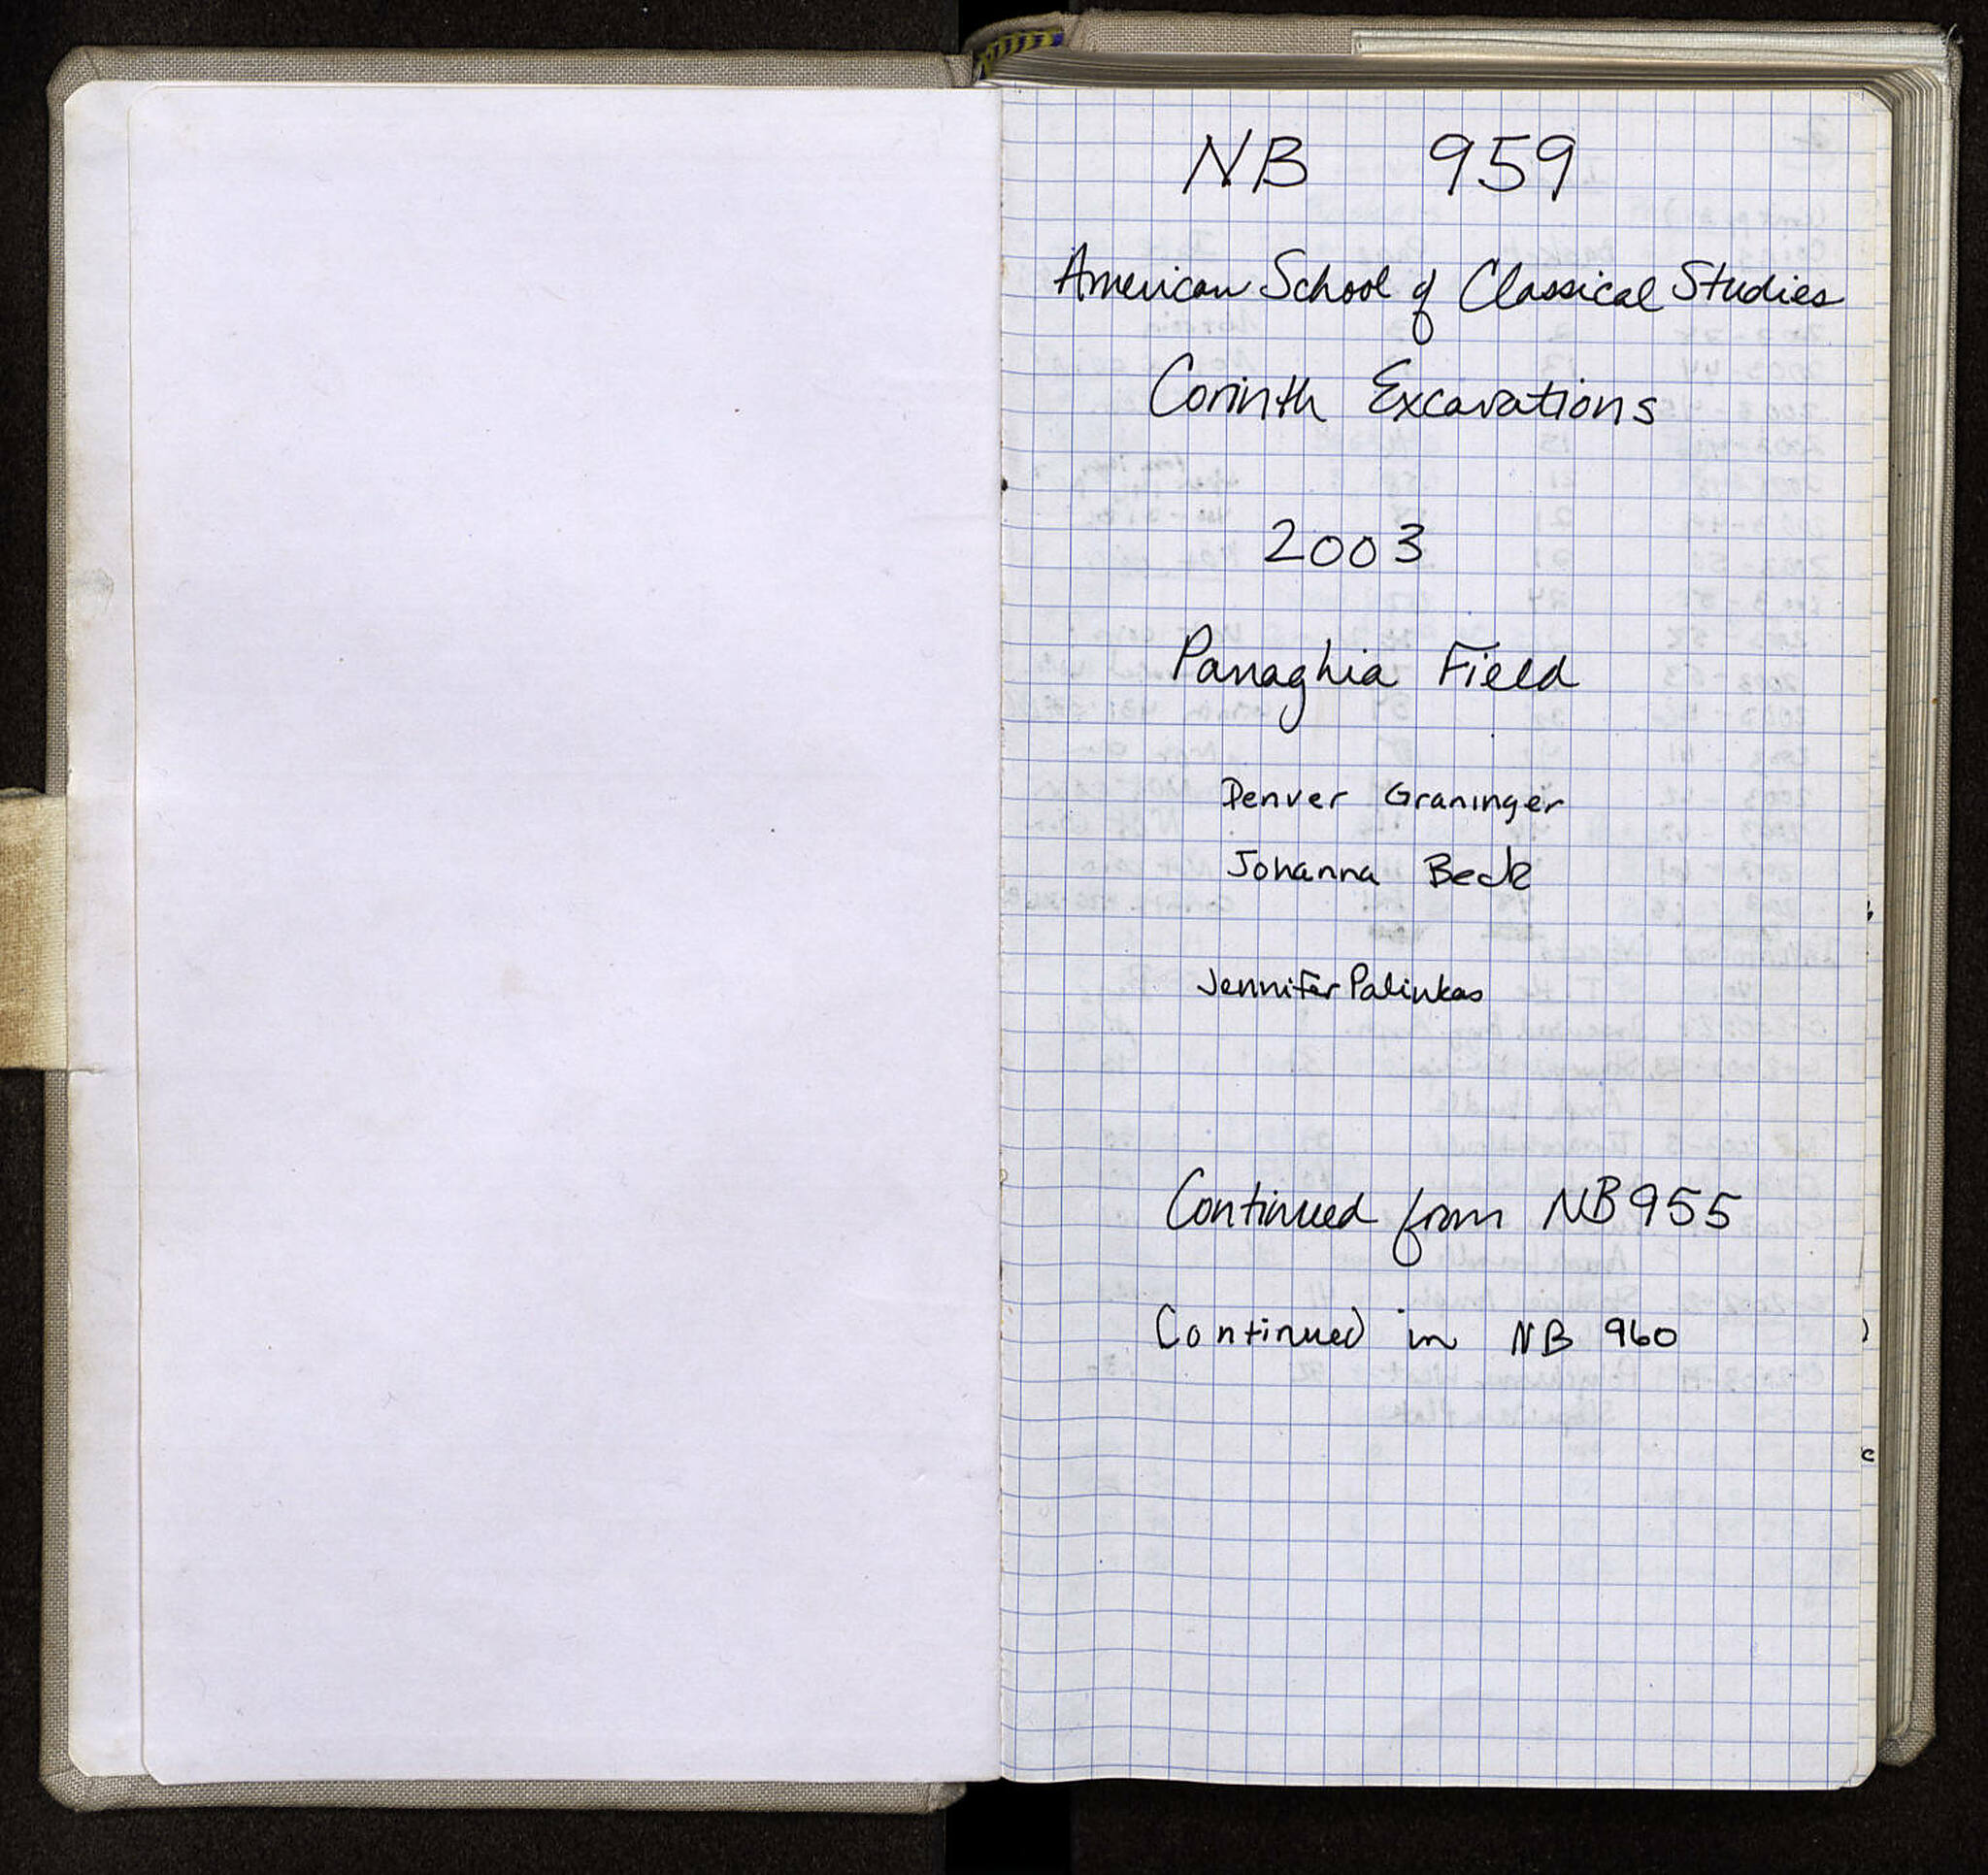 NB 959
American School of Classical Studies
Corinth Excavations
2003
Panaghia Field
Denver Graninger
Johanna Beck
Jennifer Palinkas
Continued from NB 955
Continued in NB 960